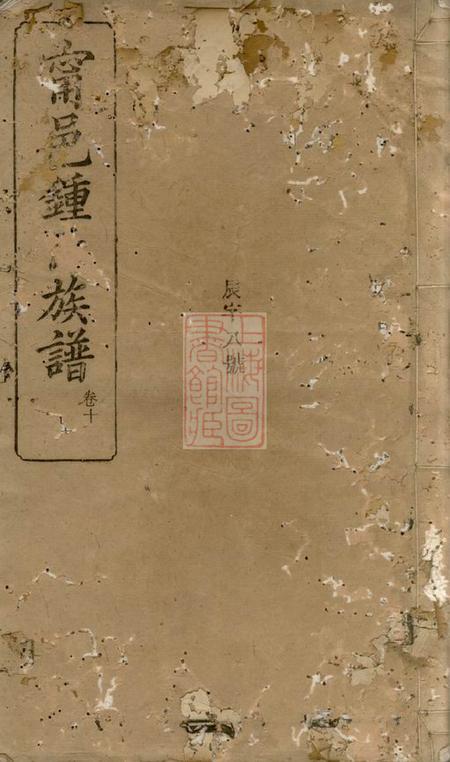 甯邑鍾 族譜
卷十
辰字八號
上海圖
書館藏